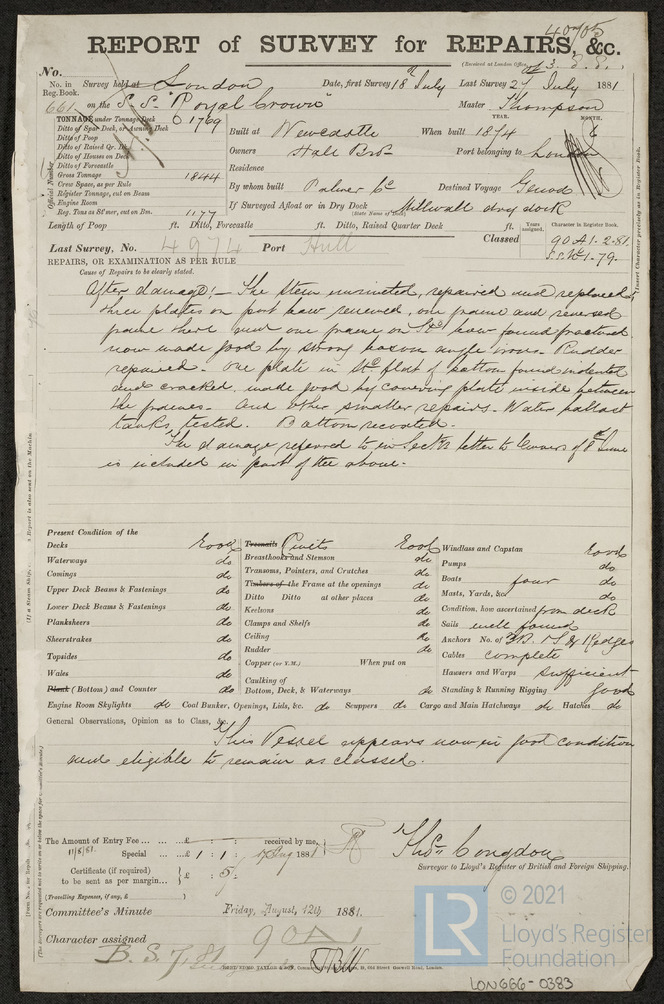 40705
REPORT of SURVEY for REPAIRS, &c.
(Received at London Office,
No.
No. in Reg. Book. Survey held at London Date, first Survey 18th July Last Survey 2 July 1881
661 on the S.S. "Royal Crown" Master Thompson
TONNAGE under Tonnage Deck 1769
Ditto of Spar Deck, or Awning Deck
Ditto of Poop
Ditto of Raised Qr. Dk
Ditto of Houses on Deck
Ditto of Forecastle
Gross Tonnage 1844
Crew Space, as per Rule
Register Tonnage, cut on Beam
Engine Room
Reg. Tons as 8th over, cut on Bm. 1177
Official Number
YEAR. MONTH.
Built at Newcastle When built 1874 6
Owners Hall Bros Port belonging to London
Residence
By whom built Palmer Co Destined Voyage Genoa
If Surveyed Afloat or in Dry Dock Millwall dry dock
(State Name of Dock)
Length of Poop ft. Ditto, Forecastle ft. Ditto, Raised Quarter Deck ft.
Years assigned. Character in Register Book.
Last Survey, No. 4974 Port Hull Classed 90A1.2.81.
S.S. No 1-79.
REPAIRS, OR EXAMINATION AS PER RULE
Cause of Repairs to be clearly stated.
After damage:- The stem unriveted, repaired and replaced,
three plates on port bow renewed, one frame and reversed
frame there and one frame on Std bow found fractured
now made good by strong angle irons. Rudder
repaired. One plate in flat of bottom found indented
and cracked, made good by covering plate inside between
the frames. And other smaller repairs. Water ballast
tanks tested. Bottom recoated.
The damage referred to in Sects letter to Owners of 8th June
is included in part of the above.
Present Condition of the
Decks Good
Waterways do
Comings do
Upper Deck Beams & Fastenings do
Lower Deck Beams & Fastenings do
Planksheers do
Sheerstrakes do
Topsides do
Wales do
Plank (Bottom) and Counter do
Treenails Rivets Good
Breasthooks and Stemson do
Transoms, Pointers, and Crutches do
Timbers of the Frame at the openings do
Ditto Ditto at other places do
Keelsons do
Clamps and Shelfs do
Ceiling do
Rudder do
Copper (or Y.M.) When put on
Caulking of
Bottom, Deck, & Waterways do
Windlass and Capstan Good
Pumps do
Boats four do
Masts, Yards, &c. do
Condition, how ascertained from deck
Sails well found
Anchors No. of 3B. 1S. & Kedges
Cables complete
Hawsers and Warps sufficient
Standing & Running Rigging good
Engine Room Skylights do Coal Bunker, Openings, Lids, &c. do Scuppers do Cargo and Main Hatchways do Hatches do
General Observations, Opinion as to Class, &c.
This Vessel appears now in good condition
and eligible to remain as classed.
The Amount of Entry Fee ... ... £ : : received by me,
11/8/81. Special ... ... £ 1 : 1 : Aug 1881
Certificate (if required) to be sent as per margin... £ : 5 :
(Travelling Expenses, if any, £ )
Thos. Congdon
Surveyor to Lloyd's Register of British and Foreign Shipping.
Committee's Minute Friday, August, 12th 1881.
Character assigned 90A1
B.S. 7.81
Insert Character precisely as in Register Book.
© 2021
LR
Lloyd's Register
Foundation
LON666-0383